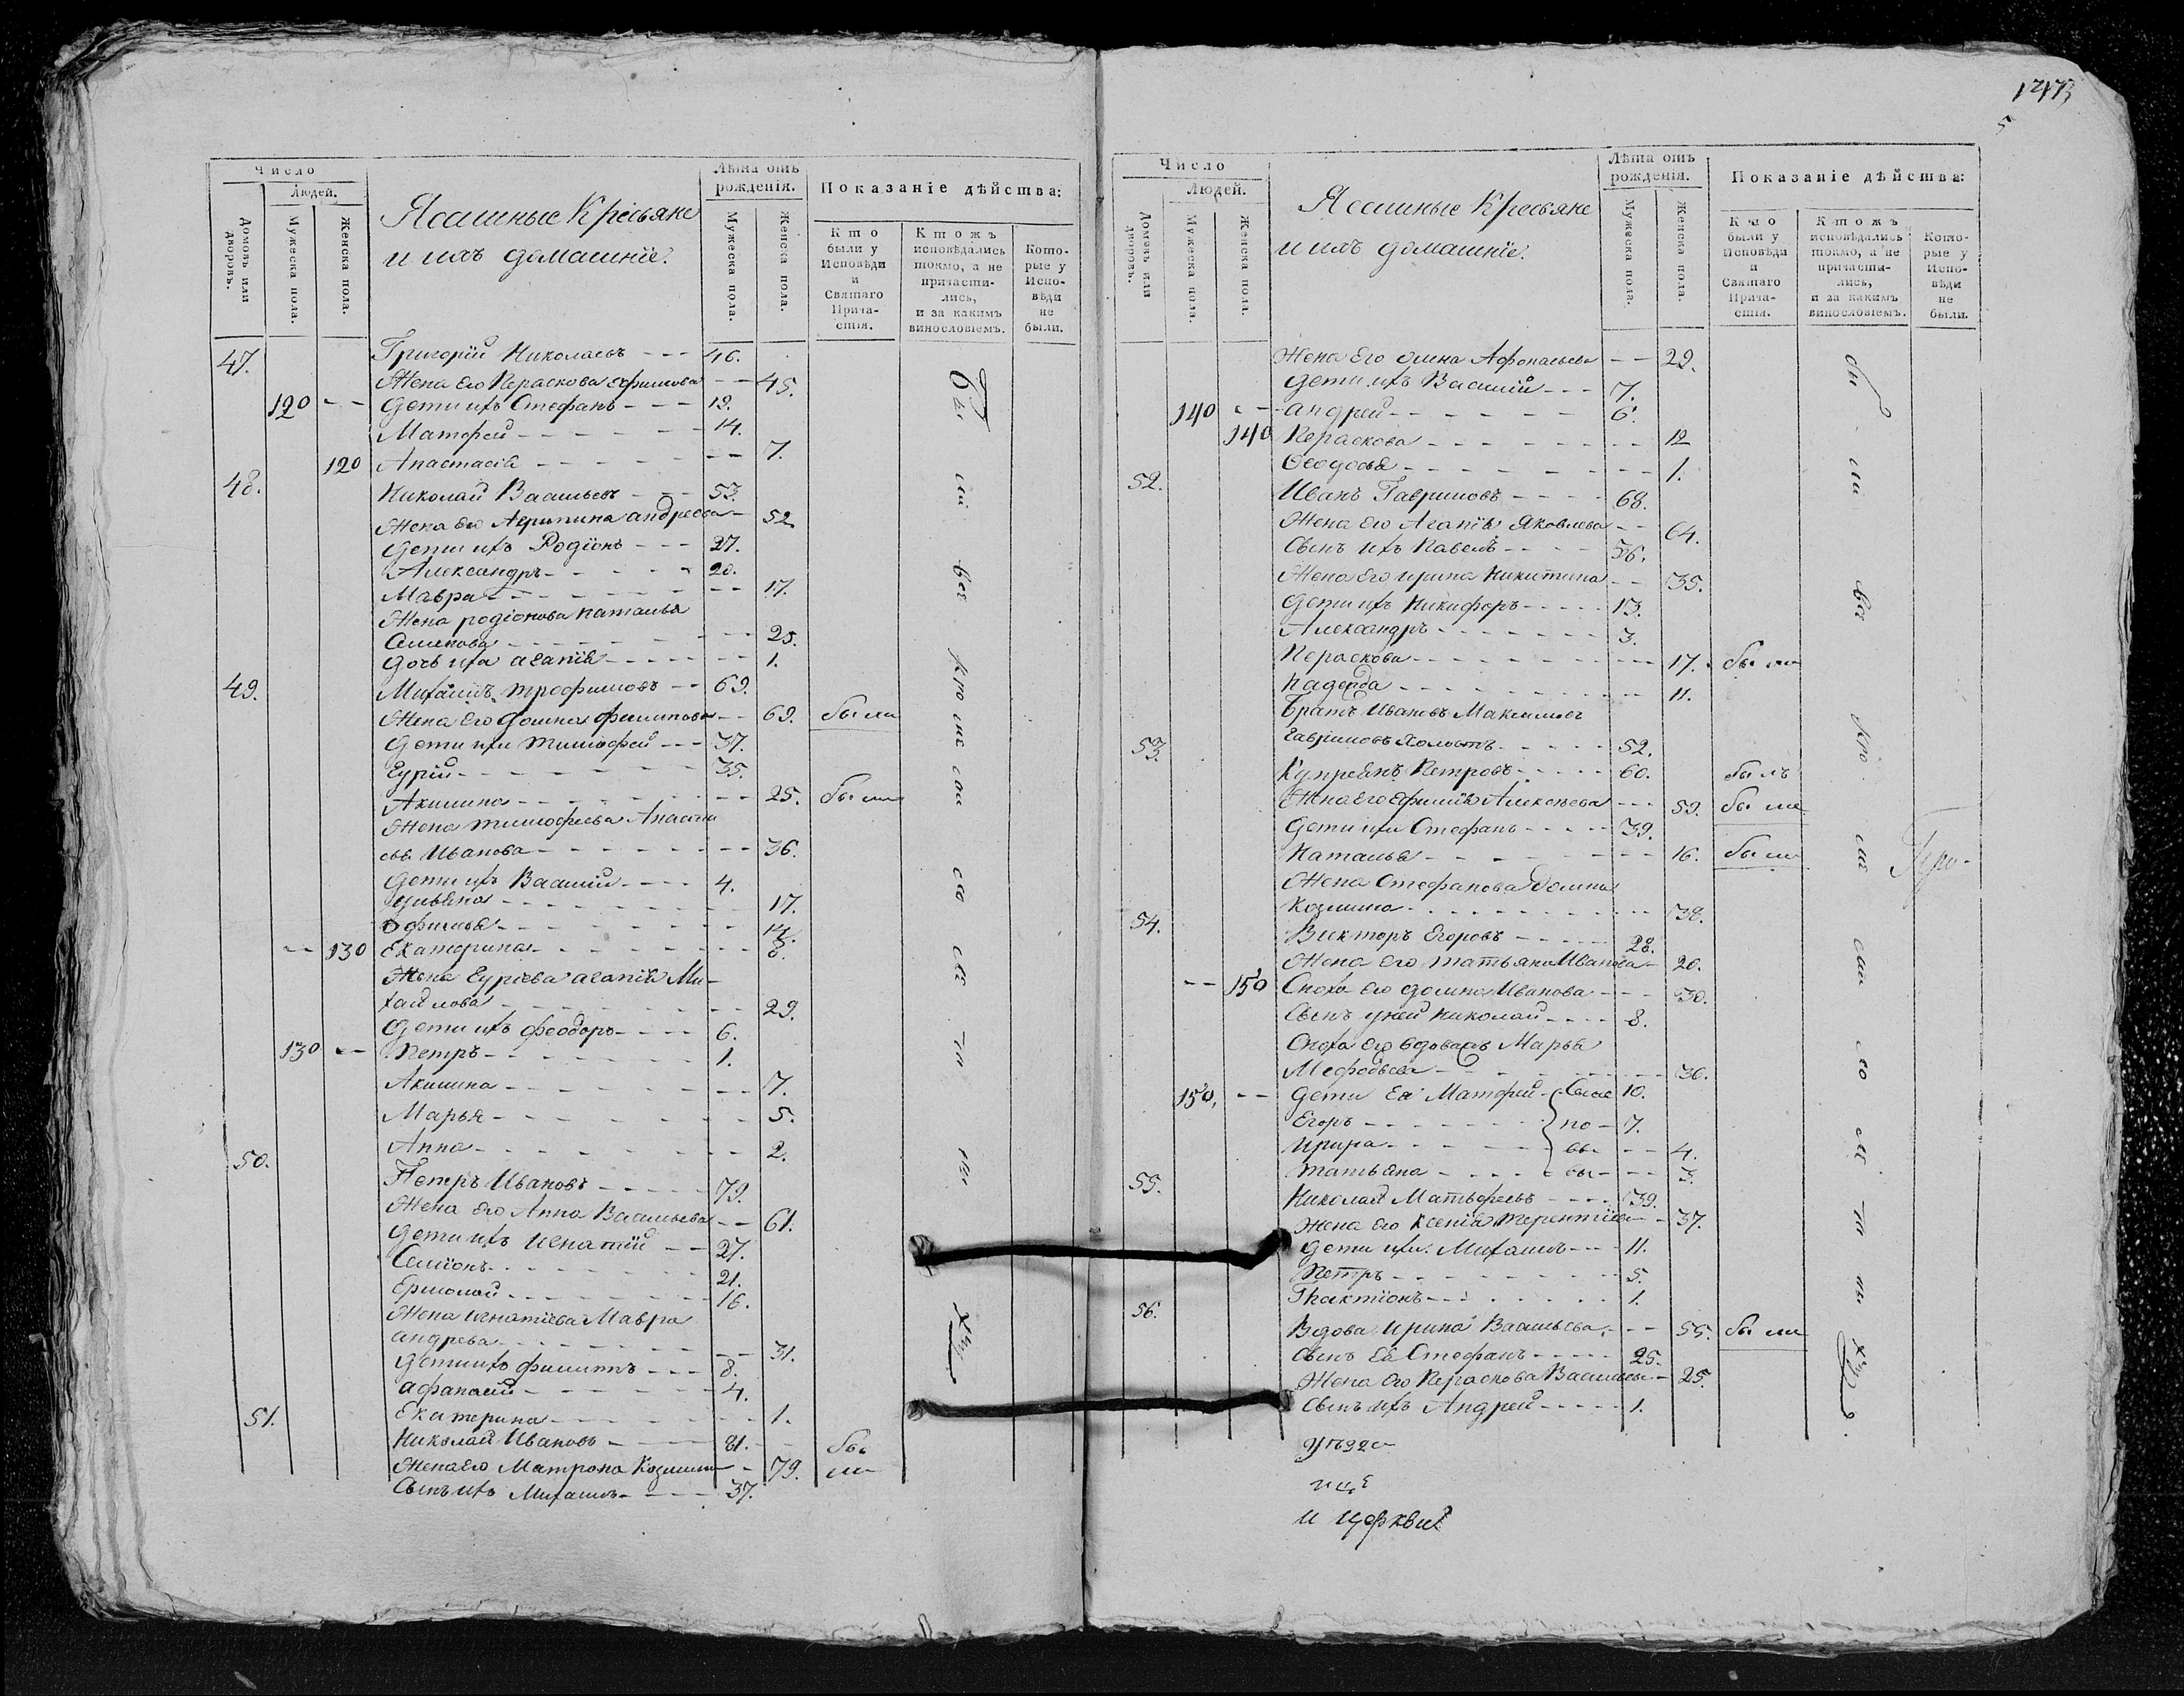 1473
5
Число
Людей.
Домовъ или дворовъ.
Мужеска пола.
Женска пола.
Ясашные Крестьяне
и ихъ домашніе.
Лѣта отъ рожденія.
Мужеска пола.
Женска пола.
Показаніе дѣйства:
Кто были у Исповѣди и Святаго Прича-стія.
Ктожъ исповѣдались токмо, а не причасти-лись, и за какимъ винословіемъ.
Кото-рые у Испо-вѣди не были.
47. Григорій Николаевъ --- 46.
Жена его Пераскова Ефимова -- 45.
120 -- дети ихъ Стефанъ --- 19.
Матфей ------ 14.
120 Анастасія ------ 7.
48. Николай Васильевъ --- 53.
Жена его Агрипина андреева - 52.
дети ихъ Родіонъ --- 27.
Александръ ----- 20.
Мавра ------ 17.
Жена родіонова наталья
Семенова ------ 25.
дочь ихъ агапія ------ 1.
49. Михаилъ трофимовъ -- 69.
Жена его домна филипова -- 69. были
дети ихъ тимофей --- 37.
Гурій ------ 35.
Акилина ------ 25. были
Жена тимофеева Анаста
сья Иванова ------ 36.
дети ихъ Василій ---- 4.
ульяна ------ 17.
Офимья ------ 14.
-- 130 Екатерина ------ 8.
Жена Гуріева агапія Ми-
хайлова ------ 29.
дети ихъ феодоръ ---- 6.
130 -- Петръ ------ 1.
Акилина ------ 7.
Марья ------ 5.
Анна ------ 2.
50. Петръ Ивановъ ----- 79.
Жена его Анна Васильева -- 61.
дети ихъ игнатій -- 27.
Семіонъ ------ 21.
Ермолай ------ 16.
Жена игнатіева Мавра
андрева ------ 31.
дети ихъ филиппъ --- 8.
афанасій ------ 4.
Екатерина ------ 1.
51. Николай Ивановъ ---- 81. бы
Жена его Матрона Козмина - 79. ли
Сынъ ихъ Михаилъ ---- 37.
Число
Людей.
Домовъ или дворовъ.
Мужеска пола.
Женска пола.
Ясашные Крестьяне
и ихъ домашніе.
Лѣта отъ рожденія.
Мужеска пола.
Женска пола.
Показаніе дѣйства:
Кто были у Исповѣди и Святаго Прича-стія.
Ктожъ исповѣдались токмо, а не причасти-лись, и за какимъ винословіемъ.
Кото-рые у Испо-вѣди не были.
Жена его Афонасьева -- 29.
дети ихъ Василій --- 7.
140 -- андрей ------ 6.
140 Пераскова ------ 12
Феодосья ------ 1.
52. Иванъ Гавриловъ ---- 68.
Жена его Агапія Яковлева -- 64.
Сынъ ихъ Павелъ ---- 36.
Жена его ирина Никитина -- 35.
дети ихъ Никифоръ ----- 13.
Александръ ------ 3.
Пераскова ------ 17. были
Надежда ------ 11.
Братъ Ивановъ Максимъ
53. Гавриловъ Холостъ ----- 52.
Купреянъ Петровъ ----- 60. былъ
Жена его Ефимія Алексѣева --- 59. были
дети ихъ Стефанъ ----- 39.
Наталья ------ 16. были
Жена Стефанова Домна
Козмина ------ 38.
54. Викторъ Егоровъ ----- 28.
Жена его татьяна Иванова - 20.
-- 150 Сноха его домна Иванова --- 30.
Сынъ у ней Николай ---- 8.
Сноха его вдовая Марья
Мефодьева ------ 36.
150. -- дети Ея Матфей 10.
Егоръ ------ 7.
------ 4.
татьяна ----- 3.
55. Николай Матьфеевъ ---- 39.
Жена его Ксенія терентіева - 37.
дети ихъ Михаилъ ---- 11.
Петръ ------ 5.
Галактіонъ ------ 1.
56. Вдова ирина Васильева --- 55. были
Сынъ Ея Стефанъ ----- 25.
Жена его Пераскова Васильева - 25.
Сынъ ихъ Андрей ----- 1.
и церкви